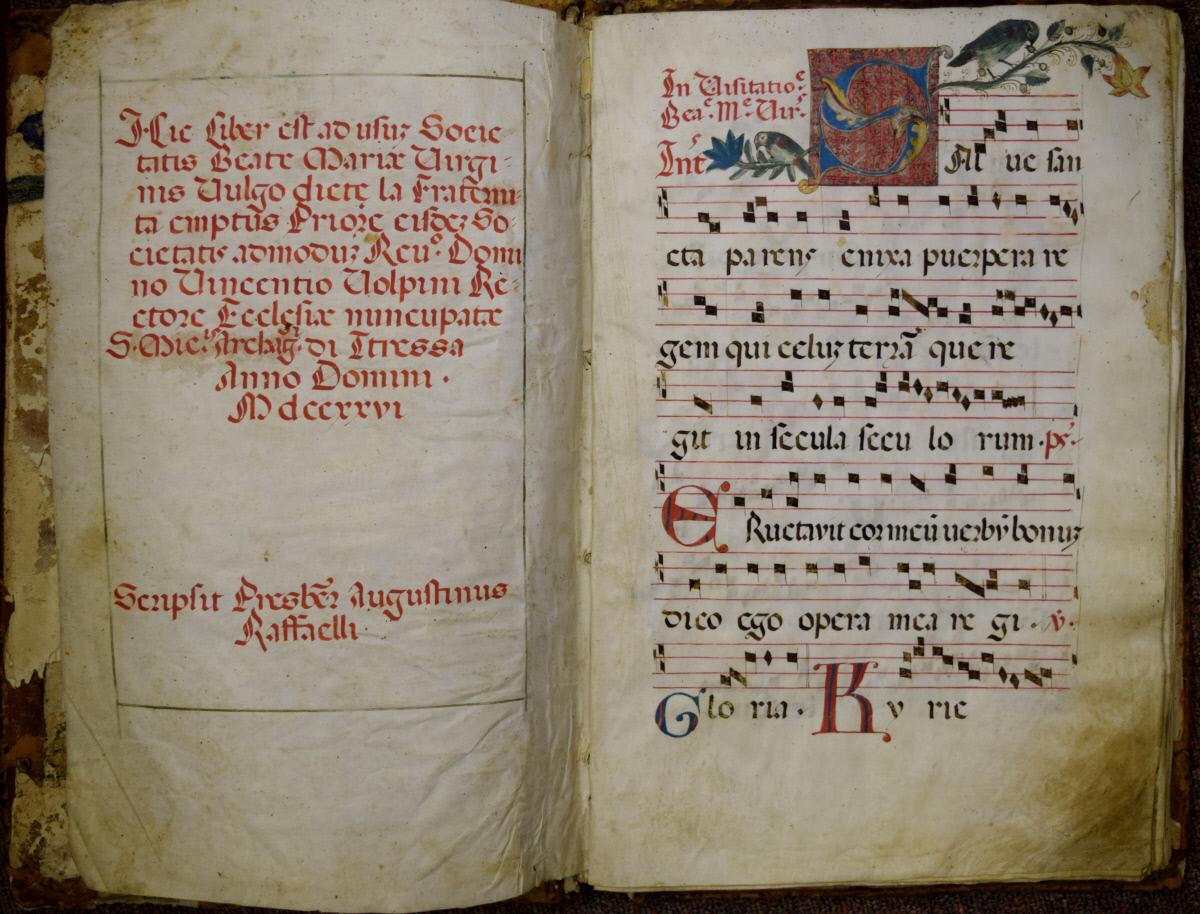 Hic Liber est ad usuz Socie
tatis Beate Mariæ Virgi-
nis Vulgo dicte la Fraterni-
tà emptus Priore eisdez So-
cietatis admoduz Reu.o Domi
no Vincentio Volpini Re-
ctore Ecclesiæ nuncupatæ
S. Mic.lis Archag. di Ttressa
Anno Domini .
M dccxxvi
Scripsit Presber Augustinus
Raffaelli
In Visitatioe
Beae. Me. Vir.
Int
SAL ue san
cta parens enixa puerpera re
gem qui celuz terrā que re
git in secula secu lo rum. ps.
ERuctavit cor meū uerbū bonuz
dico ego opera mea re gi. v.
Glo ria. Ky rie